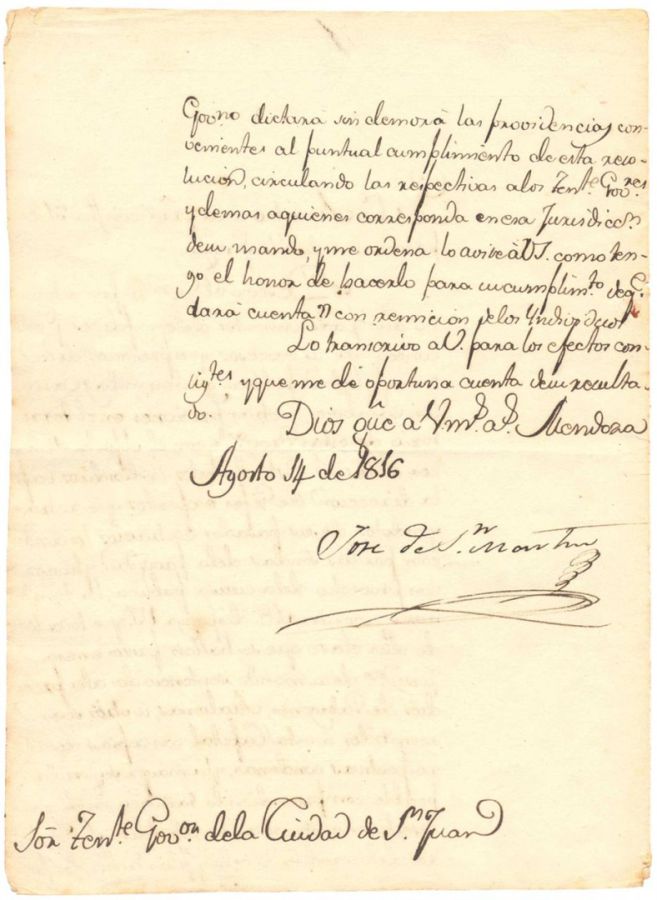 Govno dictará sin demora las providencias con-
venientes al puntual cumplimiento de esta reso-
lución, circulando las respectivas alos Tente Govres
y demas aquienes corresponda en esa Jurisdiccn
desu mando, y me ordena lo avise à VS. como ten-
go el honor de hacerlo para su cumplimto deq.
dará cuenta con remición delos Yndividuos
Lo transcrivo a V. para los efectos con-
sigtes, yque me dé oportuna cuenta desu resulta-
do.
Dios gue a Vm. as. Mendoza
Agosto 14 de 1816
Jose de Sn Martin
Sōr Tente Govor dela Ciudad de Sn Juan